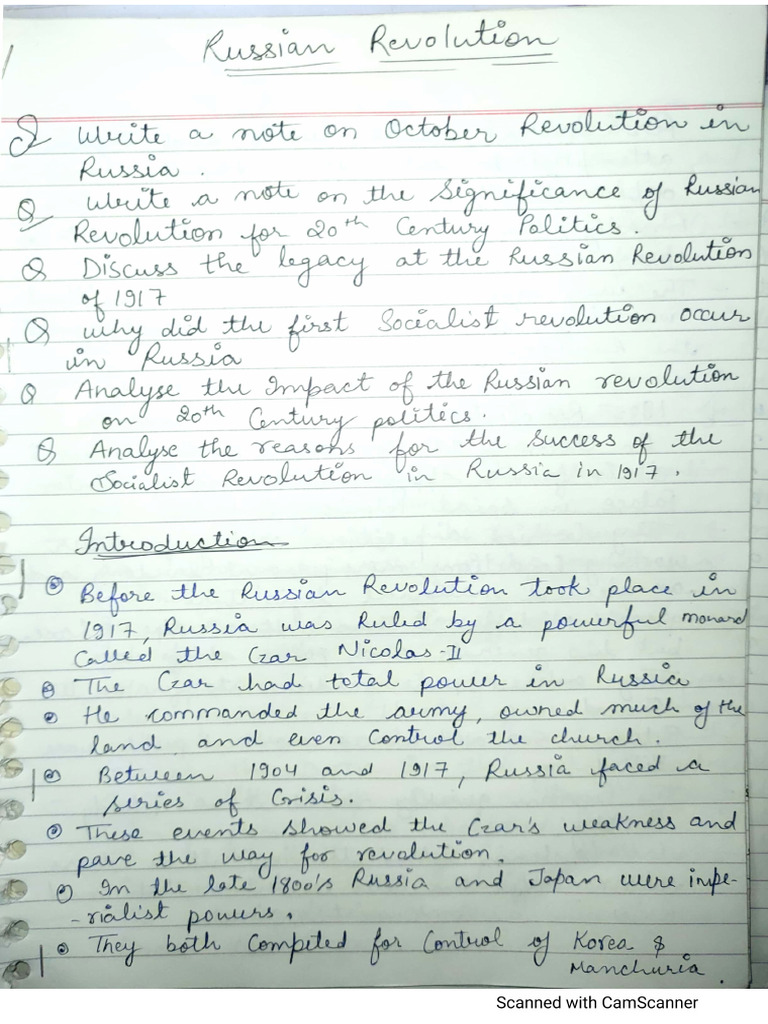 Russian Revolution
Q Write a note on October Revolution in
Russia.
Q Write a note on the Significance of Russian
Revolution for 20th Century Politics.
Q Discuss the legacy at the Russian Revolution
of 1917
Q why did the first Socialist revolution occur
in Russia
Q Analyse the Impact of the Russian revolution
on 20th Century politics.
Q Analyse the reasons for the success of the
Socialist Revolution in Russia in 1917.
Introduction
Before the Russian Revolution took place in
1917, Russia was Ruled by a powerful monard
Called the Czar Nicolas-II
The Czar had total power in Russia
He commanded the army, owned much of the
land and even Control the church.
Between 1904 and 1917, Russia faced a
series of Crisis.
These events showed the Czar's weakness and
pave the way for revolution.
In the late 1800's Russia and Japan were impe-
-rialist powers.
They both Competed for Control of Korea &
Manchuria.
Scanned with CamScanner